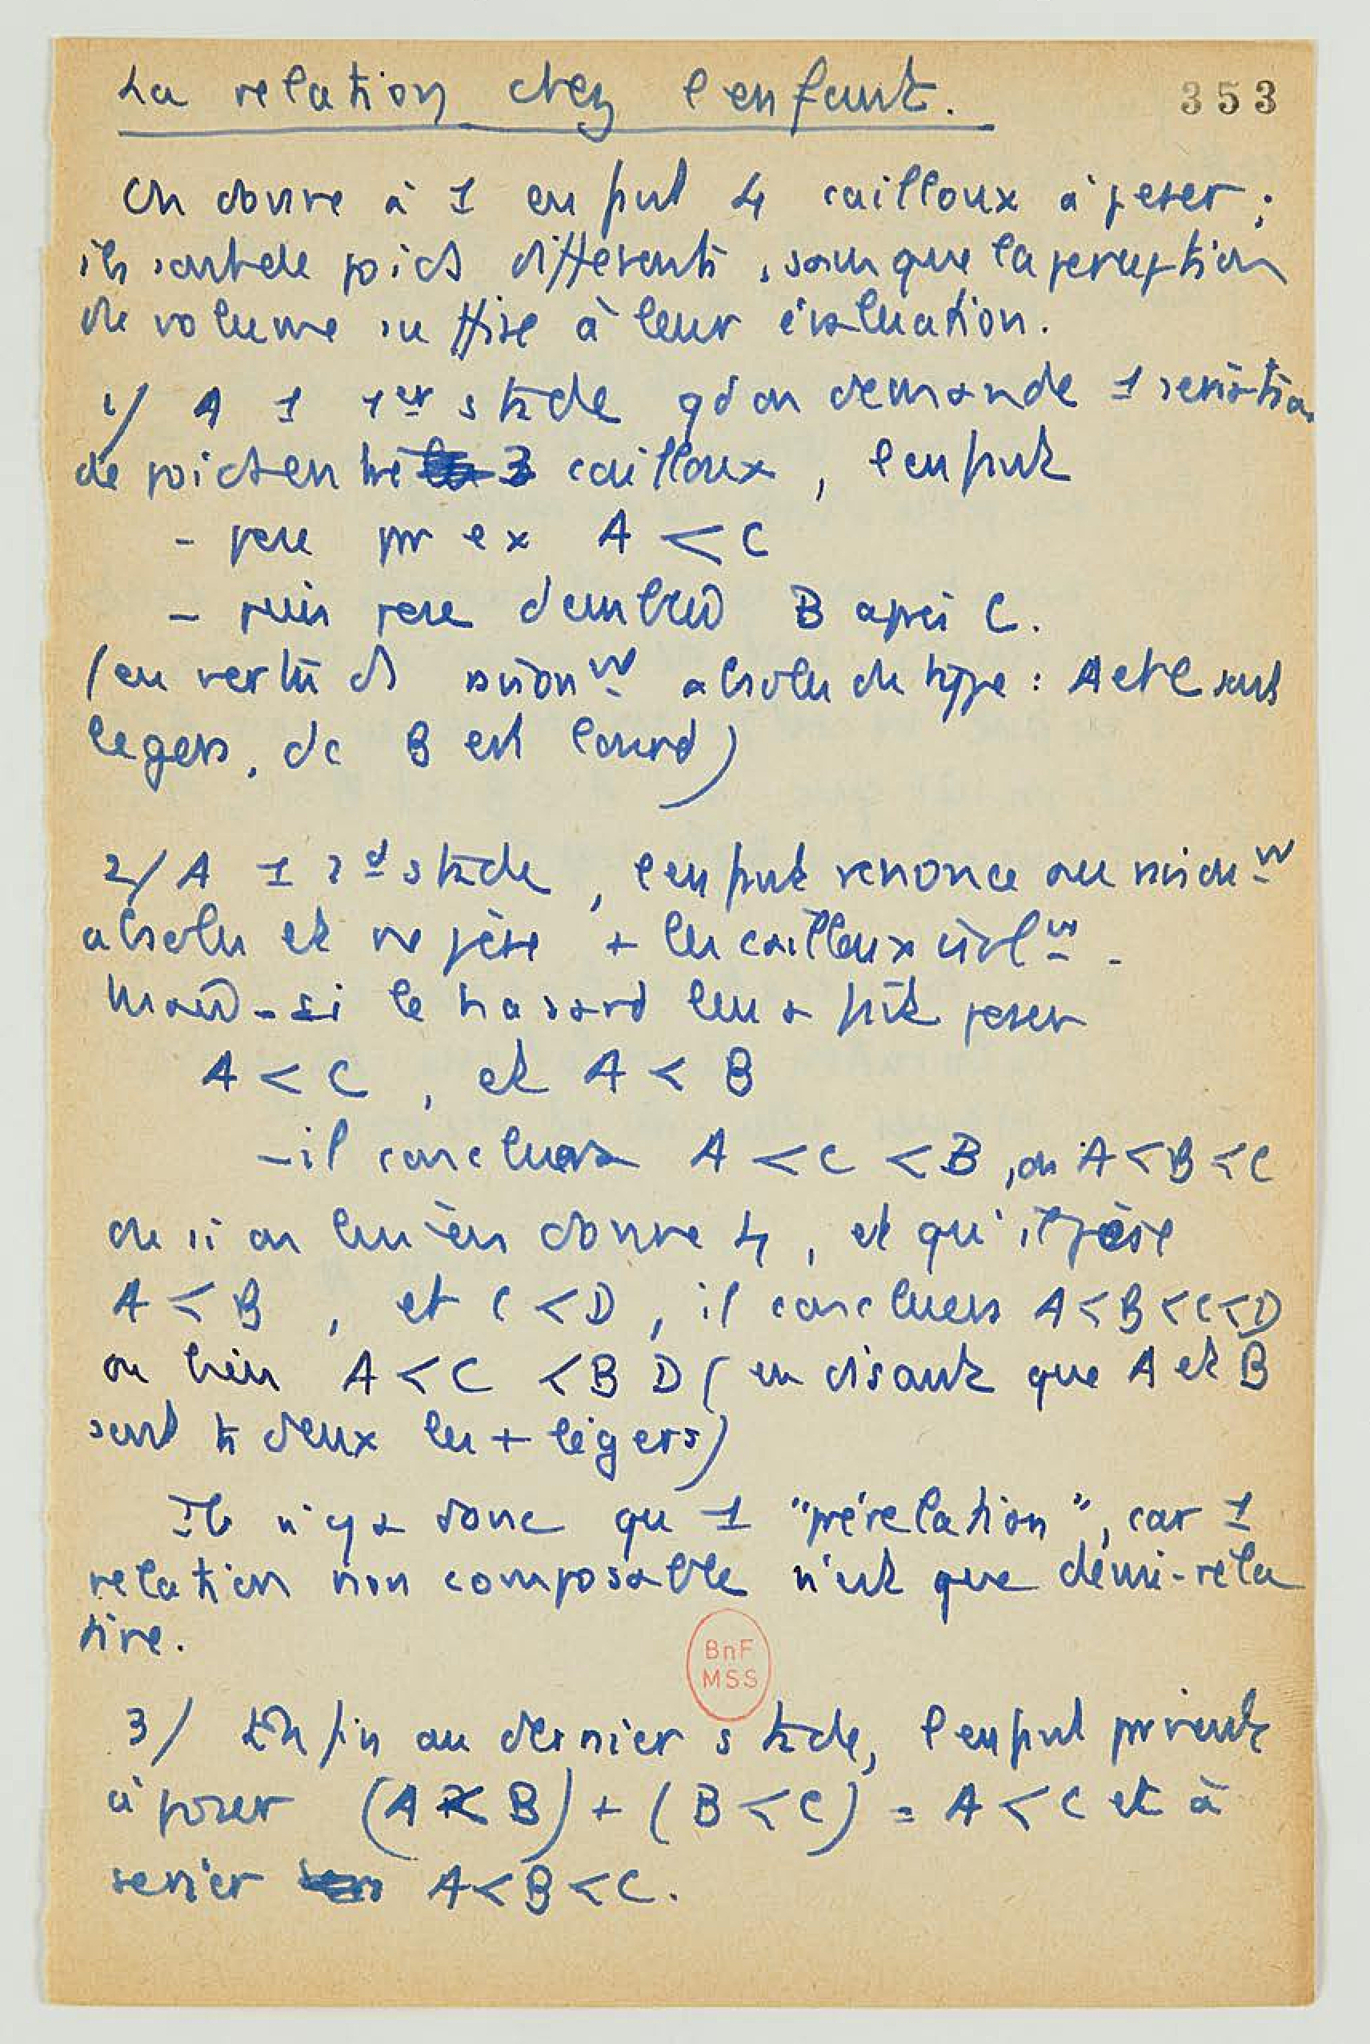 La relation chez l'enfant.
353
On donne à 1 enfant 4 cailloux à peser ;
ils sont de poids différents, sans que la perception
du volume suffise à leur évaluation.
1/ A 1 1er stade qd on demande 1 sériation
de poids entre 3 cailloux, l'enfant
- pèse pr ex A < C
- puis pese d'emblée B après C.
(en vertu d absolu du type : A et C sont
legers, dc B est lourd)
2/ A 1 2d stade, l'enfant renonce au
absolu et ne pèse + les cailloux isolmt.
Mais - si le hasard leur a fait peser
A < C, et A < B
- il conclura A < C < B, ou A < B < C
ou si on lui en donne 4, et qu'il pèse
A < B, et C < D, il conclura A < B < C < D
ou bien A < C < B D (en disant que A et B
sont ts deux les + légers)
Il n'y a donc qu 1 "prérelation", car 1
relation non composable n'est que demi-rela
tive.
BnF
MSS
3/ Enfin au dernier stade, l'enfant parvient
à poser (A < B) + (B < C) = A < C et à
serier A < B < C.